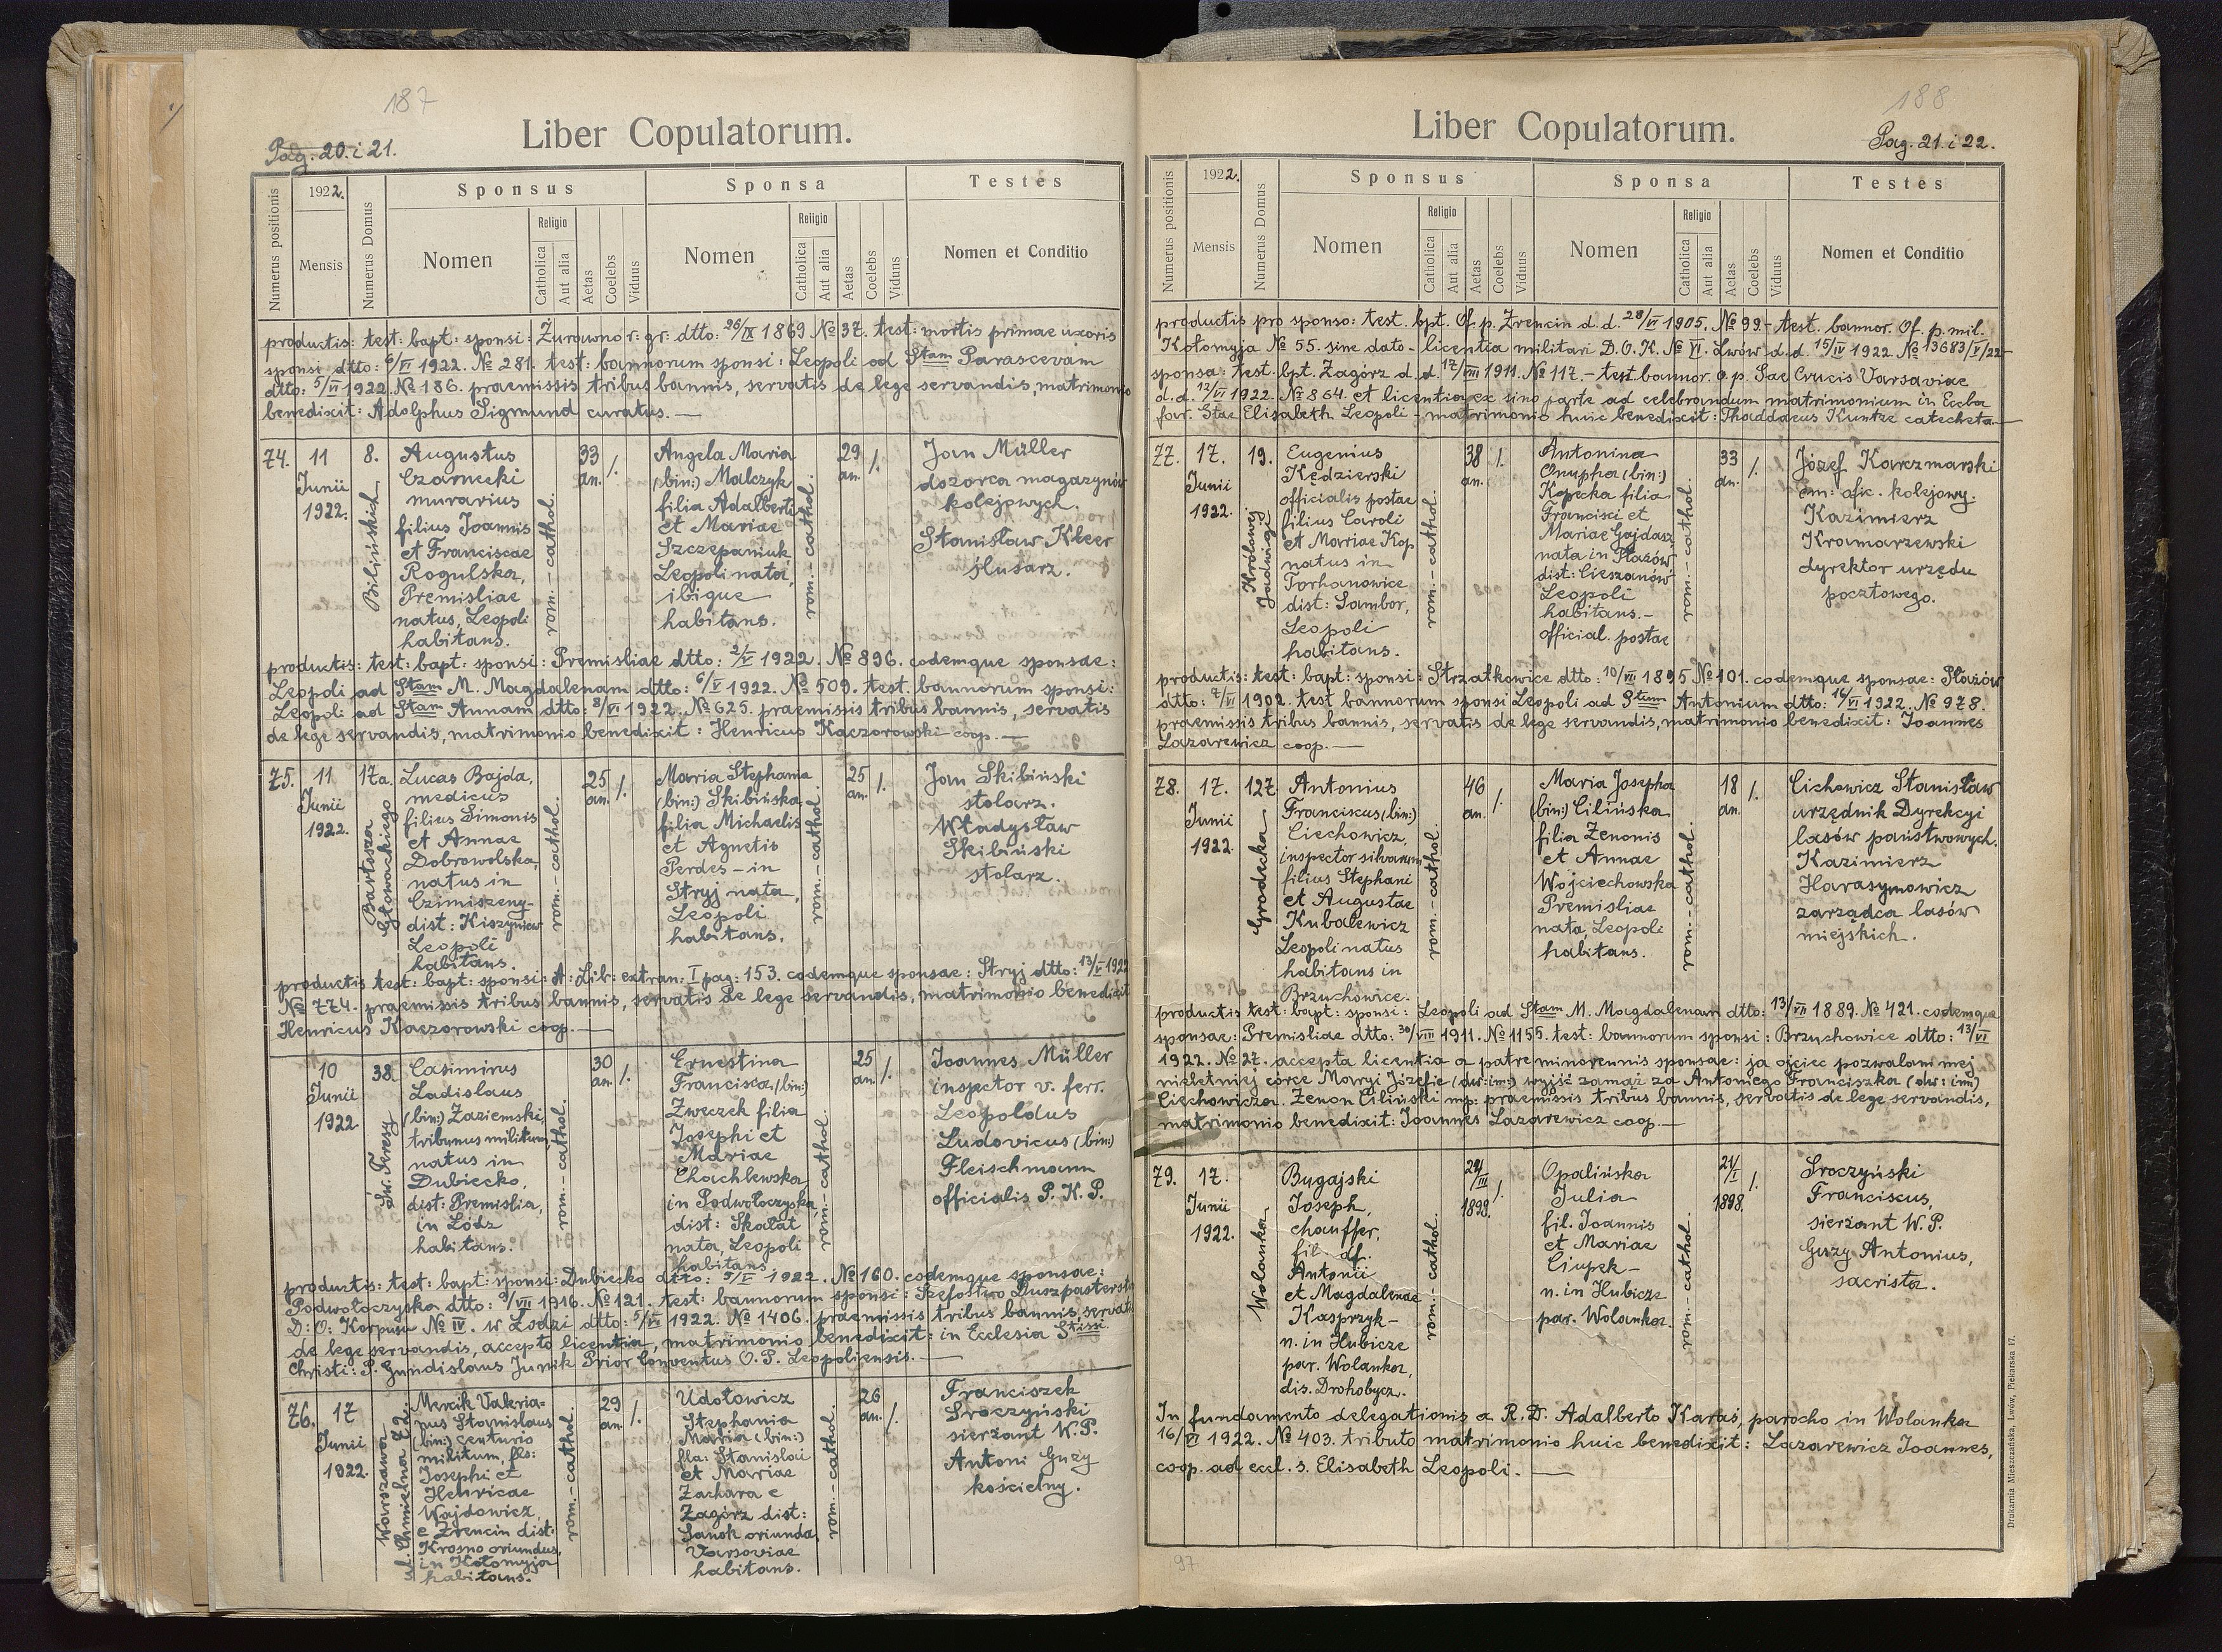 187
Pag. 20. i 21.
Liber Copulatorum.
Numerus positionis
1922.
Mensis
Numerus Domus
Sponsus
Nomen
Religio
Catholica
Aut alia
Aetas
Coelebs
Viduus
Sponsa
Nomen
Religio
Catholica
Aut alia
Aetas
Coelebs
Viduns
Testes
Nomen et Conditio
productis: test: bapt: sponsi: Żurawno r. gr. dtto: 26/IV 1869 № 37. test: mortis primae uxoris
sponsi dtto: 6/VI 1922. № 281. test: bannorum sponsi: Leopoli ad Stam Parascevam
dtto: 5/VI 1922. № 186. praemissis tribus bannis, servatis de lege servandis, matrimonio
benedixit: Adolphus Sigmund curatus. —
74.
11
Junii
1922.
8.
Bilińskich
Augustus
Czarnecki
murarius
filius Joannis
et Franciscae
Rogulska,
Premisliae
natus, Leopoli
habitans.
rom.-cathol.
33
an.
/.
Angela Maria
(bin:) Malczyk
filia Adalberti
et Mariae
Szczepaniuk
Leopoli nata,
ibique
habitans.
rom.-cathol.
29
an.
/.
Jan Müller
dozorca magazynów
kolejowych.
Stanisław Kleer
ślusarz.
productis: test: bapt: sponsi: Premisliae dtto: 2/V 1922. № 896. eodemque sponsae:
Leopoli ad Stam M. Magdalenam dtto: 6/V 1922. № 509. test. bannorum sponsi:
Leopoli ad Stam Annam dtto: 8/VI 1922. № 625. praemissis tribus bannis, servatis
de lege servandis, matrimonio benedixit: Henricus Kaczorowski coop. —
75.
11
Junii
1922.
17a.
Bartosza
Głowackiego
Lucas Bajda,
medicus
filius Simonis
et Annae
Dobrowolska,
natus in
Czimiszeny-
dist: Kiszyniew
Leopoli
habitans.
rom.-cathol.
25
an.
/.
Maria Stephania
(bin:) Skibińska
filia Michaelis
et Agnetis
Perdes - in
Stryj nata,
Leopoli
habitans.
rom.-cathol.
25
an.
/.
Jan Skibiński
stolarz.
Władysław
Skibiński
stolarz.
productis test: bapt: sponsi: A: Lib: extran: I pag: 153. eodemque sponsae: Stryj dtto: 13/V 1922
№ 774. praemissis tribus bannis, servatis de lege servandis, matrimonio benedixit
Henricus Kaczorowski coop. —
10
Junii
1922.
38.
Św. Teresy
Casimirus
Ladislaus
(bin:) Zaziemski,
tribunus militum,
natus in
Dubiecko,
dist: Premislia,
in Łódź
habitans.
rom.-cathol.
30
an.
/.
Ernestina
Francisca (bin:)
Zwęczek filia
Josephi et
Mariae
Chachlewska
in Podwołoczyska
dist: Skałat
nata, Leopoli
habitans.
rom.-cathol
25
an.
/.
Joannes Müller
inspector v. ferr.
Leopoldus
Ludovicus (bin:)
Fleischmann
officialis P. K. P.
productis: test: bapt: sponsi: Dubiecko dtto: 5/V 1922. № 160. eodemque sponsae:
Podwołoczyska dtto: 9/VII 1916. № 121. test: bannorum sponsi: Szefostwo Duszpasterstw
D: O: Korpusu № IV. w Łodzi dtto: 5/VI 1922. № 1406. praemissis tribus bannis, servatis
de lege servandis, accepta licentia, matrimonio benedixit: in Ecclesia Stissi
Christi: P. Gundislaus Junik Prior Conventus O. P. Leopoliensis. —
76.
17
Junii
1922.
Warszawa
ul. Chmielna 42.
Mercik Valeria-
nus Stanislaus
(bin:) centurio
militum, fls:
Josephi et
Henricae
Wajdowicz,
e Zrencin dist:
Krosno oriundus,
in Kołomyja
habitans.
rom.-cathol.
29
an.
/.
Udołowicz
Stephania
Maria (bin:)
fla: Stanislai
et Mariae
Zachara e
Zagórz dist:
Sanok oriunda,
Varsaviae
habitans.
rom.-cathol.
26
an.
/.
Franciszek
Sroczyński
sierżant W. P.
Antoni Guzy
kościelny.
188
Liber Copulatorum.
Pag. 21. i 22.
Numerus positionis
1922.
Mensis
Numerus Domus
Sponsus
Nomen
Religio
Catholica
Aut alia
Aetas
Coelebs
Viduus
Sponsa
Nomen
Religio
Catholica
Aut alia
Aetas
Coelebs
Viduus
Testes
Nomen et Conditio
productis pro sponso: test. bpt. Of. p. Zrencin d. d. 28/VI 1905. № 99 - test. bannor. Of. p. mil.
Kołomyja № 55. sine dato - licentia militari D. O. K. № VI. Lwów d. d. 15/IV 1922 № 13683/V/22 -
sponsa: test. bpt. Zagórz d. d. 17/VIII 1911. № 117. - test. bannor. o. p. Sae Crucis Varsaviae
d. d. 12/VI 1922. № 864. et licentia ex sino parte ad celebrandum matrimonium in Eccba
par. Stae Elisabeth Leopoli - matrimonio huic benedixit: Thaddaeus Kuntze catecheta —
77.
17.
Junii
1922.
19.
Królowej
Jadwigi
Eugenius
Kędzierski
officialis postae
filius Caroli
et Mariae Kop
natus in
Torhanowice
dist: Sambor,
Leopoli
habitans.
rom.-cathol.
38
an.
/.
Antonina
Onuphra (bin:)
Kopecka filia
Francisci et
Mariae Gajdasz
nata in Płazów
dist: Cieszanów
Leopoli
habitans. -
official. postae
rom.-cathol.
33
an.
/.
Józef Karczmarski
em: ofic. kolejowy.
Kazimierz
Kramarzewski
dyrektor urzędu
pocztowego.
productis: test: bapt: sponsi: Strzałkowice dtto: 10/VII 1895 № 101. eodemque sponsae: Płazów
dtto: 7/VI 1902. test bannorum sponsi Leopoli ad Stum Antonium dtto: 16/VI 1922. № 978.
praemissis tribus bannis, servatis de lege servandis, matrimonio benedixit: Joannes
Lazarewicz coop. —
78.
17.
Junii
1922.
127
Grodecka
Antonius
Franciscus (bin:)
Ciechowicz,
inspector silvarum
filius Stephani
et Augustae
Kubalewicz
Leopoli natus
habitans in
Brzuchowice.
rom.-cathol.
46
an.
/.
Maria Josepha
(bin:) Cilińska
filia Zenonis
et Annae
Wojciechowska
Premisliae
nata, Leopoli
habitans.
rom.-cathol.
18
an.
/.
Cichowicz Stanisław
urzędnik Dyrekcyi
lasów państwowych.
Kazimierz
Harasymowicz
zarządca lasów
miejskich.
productis test: bapt: sponsi: Leopoli ad Stam M. Magdalenam dtto: 13/VII 1889. № 421. eodemque
sponsae: Premisliae dtto: 30/VIII 1911. № 1155. test: bannorum sponsi: Brzuchowice dtto: 13/VI
1922. № 27. accepta licentia a patre minorennis sponsae: ja ojciec pozwalam mej
nieletniej córce Maryi Józefie (dw: im:) wyjść zamąż za Antoniego Franciszka (dw: im)
Ciechowicza. Zenon Ciliński mp: praemissis tribus bannis, servatis de lege servandis,
matrimonio benedixit: Joannes Lazarewicz coop. —
79.
17.
Junii
1922.
Wolanka
Bugajski
Joseph,
chauffer,
fil. df.
Antonii
et Magdalenae
Kasprzyk -
n. in Hubicze
par. Wolanka,
dis. Drohobycz.
rom.-cathol.
24/III
1898.
/.
Opalińska
Julia
fil. Joannis
et Mariae
Ciupek -
n. in Hubicze
par. Wolanka.
rom.-cathol.
21/I
1898.
/.
Sroczyński
Franciscus,
sierżant W. P.
Guzy Antonius,
sacrista.
In fundamento delegationis a R. D. Adalberto Karaś, parocho in Wolanka
16/VI 1922. № 403. tributo matrimonio huic benedixit: Lazarewicz Joannes,
coop. ad eccl. s. Elisabeth Leopoli. —
97
Drukarnia Mieszczańska, Lwów, Piekarska 17.